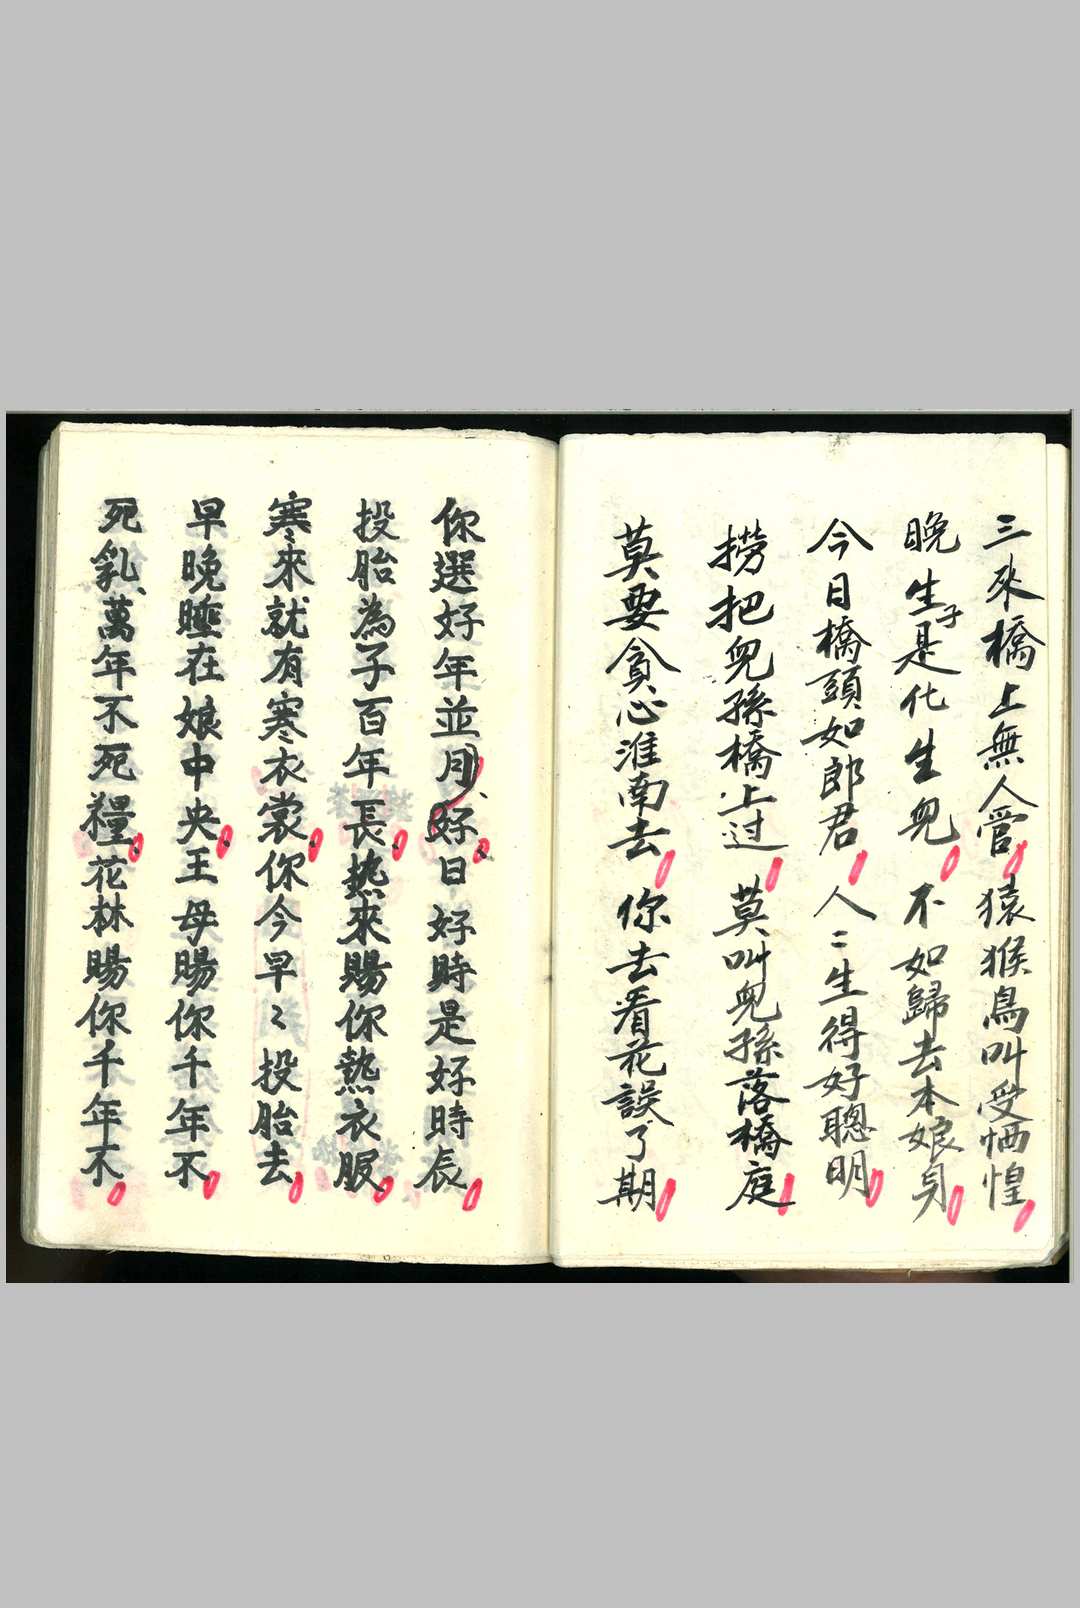 三來橋上無人管猿猴鳥叫受恓惶
晚生子是化生兒不如歸去本娘身
今日橋頭如郎君人〻生得好聰明
撈把兒孫橋上过莫叫兒孫落橋庭
莫要貪心淮南去你去看花誤了期
你選好年並月好日好時是好時辰
投胎為子百年長热來賜你熱衣服
寒來就有寒衣裳你今早〻投胎去
早晚睡在娘中央王母賜你千年不
死乳萬年不死糧花林賜你千年不